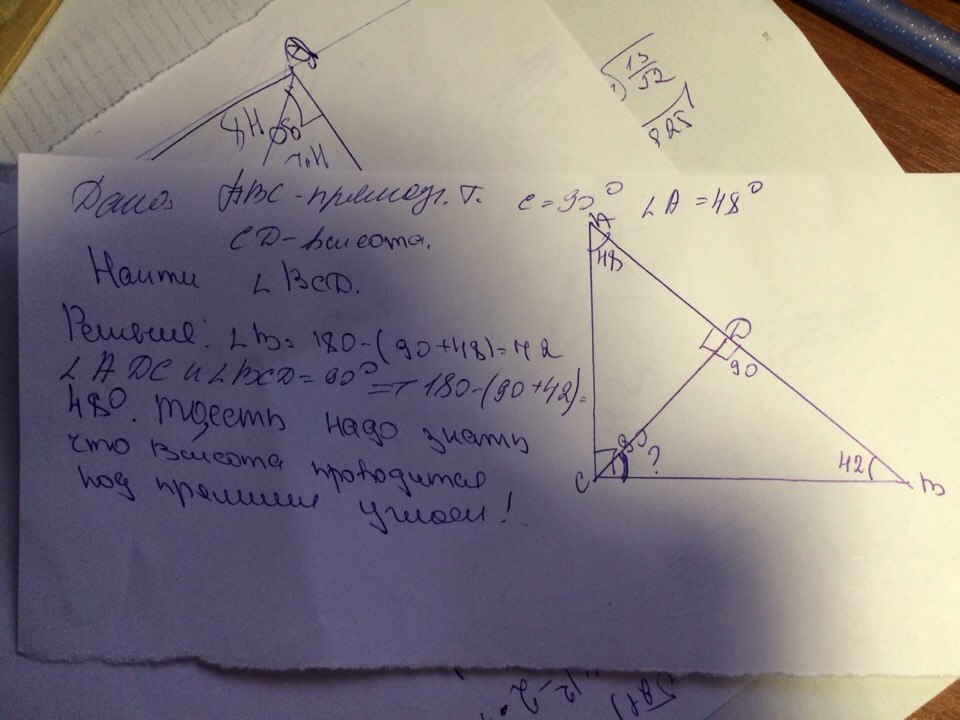 8H
√13/52
825
Дано: ABC - прямоуг. т. C = 90° ∠A = 48°
CD - высота.
Найти ∠BCD.
Решение: ∠B = 180-(90+48)=42
∠ADC и ∠BCD = 90° => 180-(90+42)=
48°. Тоесть надо знать
что высота проводится
под прямым углом!
A
48
D
90
C
90
?
42
B
12-2